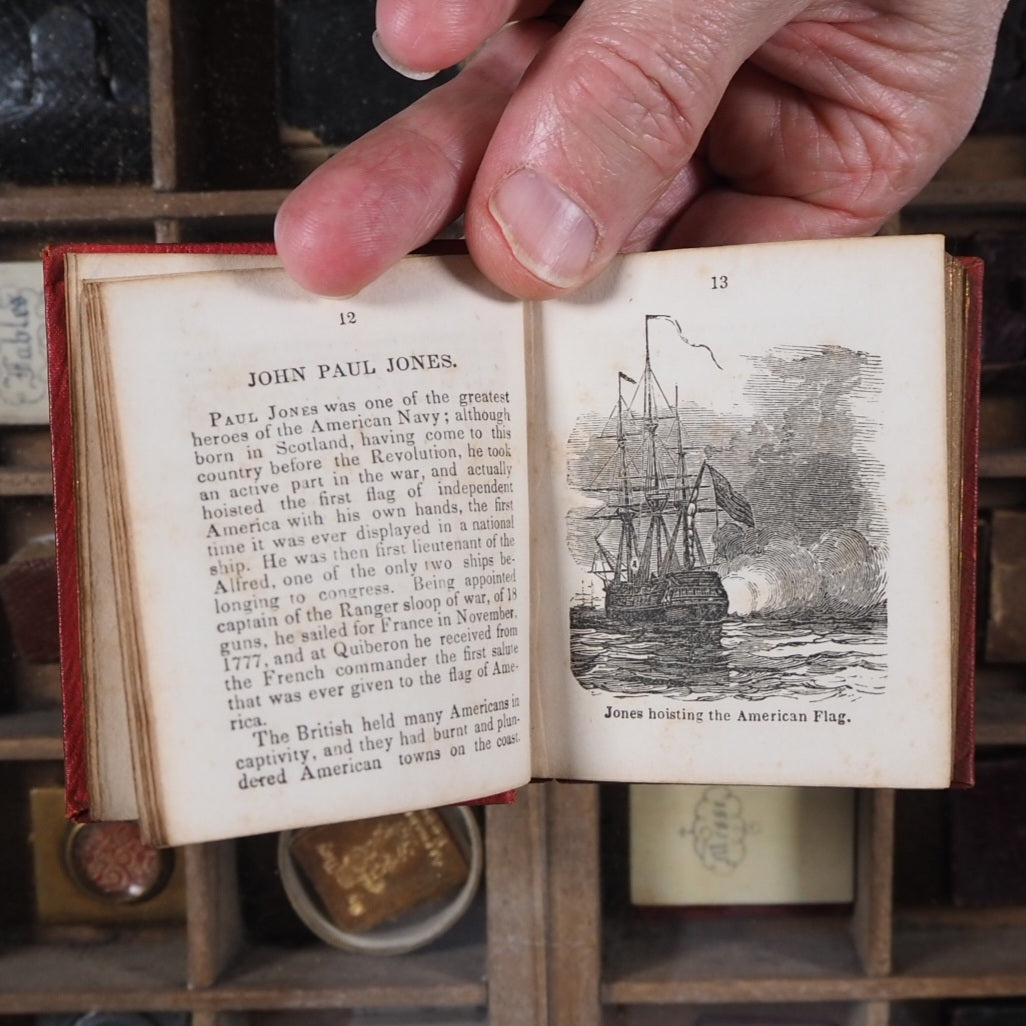 12
JOHN PAUL JONES.
PAUL JONES was one of the greatest
heroes of the American Navy; although
born in Scotland, having come to this
country before the Revolution, he took
an active part in the war, and actually
hoisted the first flag of independent
America with his own hands, the first
time it was ever displayed in a national
ship. He was then first lieutenant of the
Alfred, one of the only two ships be-
longing to congress. Being appointed
captain of the Ranger sloop of war, of 18
guns, he sailed for France in November,
1777, and at Quiberon he received from
the French commander the first salute
that was ever given to the flag of Ame-
rica.
The British held many Americans in
captivity, and they had burnt and plun-
dered American towns on the coast.
13
Jones hoisting the American Flag.
Fables